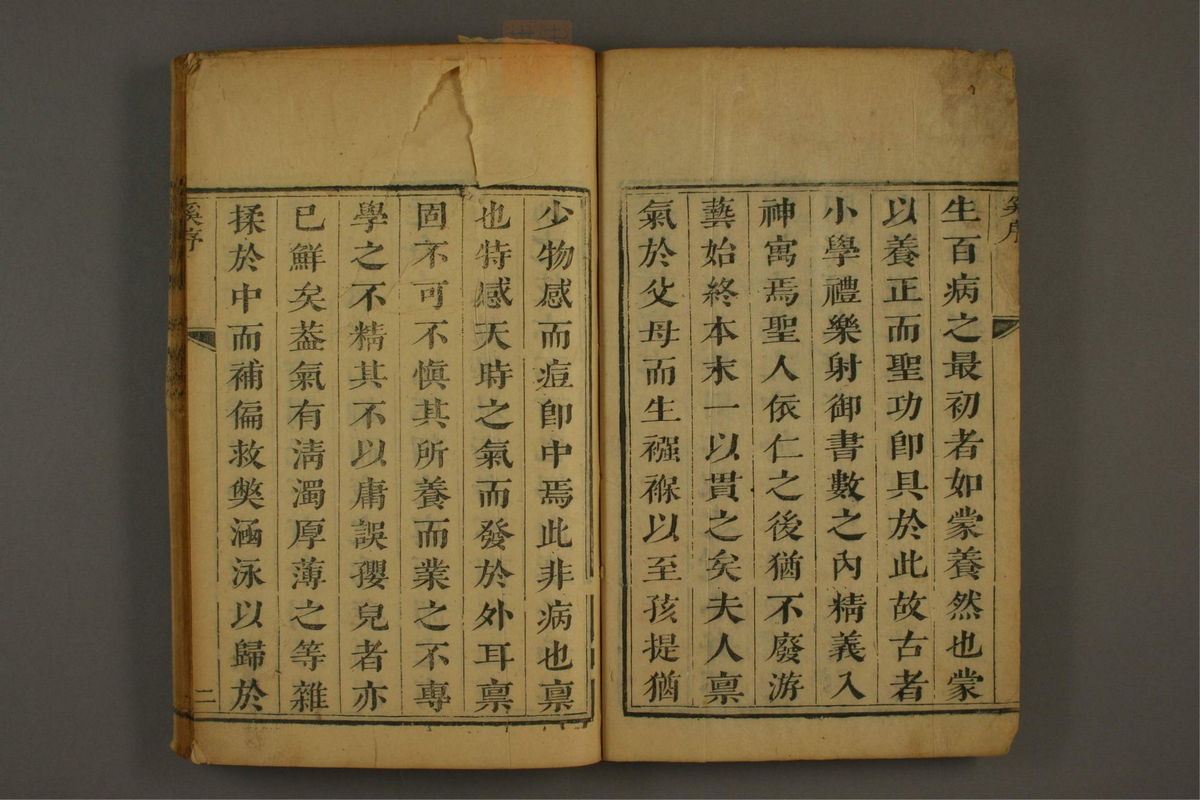 生百病之最初者如蒙養然也蒙
以養正而聖功卽具於此故古者
小學禮樂射御書數之內精義入
神寓焉聖人依仁之後猶不廢游
藝始終本末一以貫之矣夫人禀
氣於父母而生襁褓以至孩提猶
少物感而痘卽中焉此非病也禀
也特感天時之氣而發於外耳禀
固不可不愼其所養而業之不專
學之不精其不以庸誤孾兒者亦
已鮮矣葢氣有淸濁厚薄之等雜
揉於中而補偏救獘涵泳以歸於
序
二